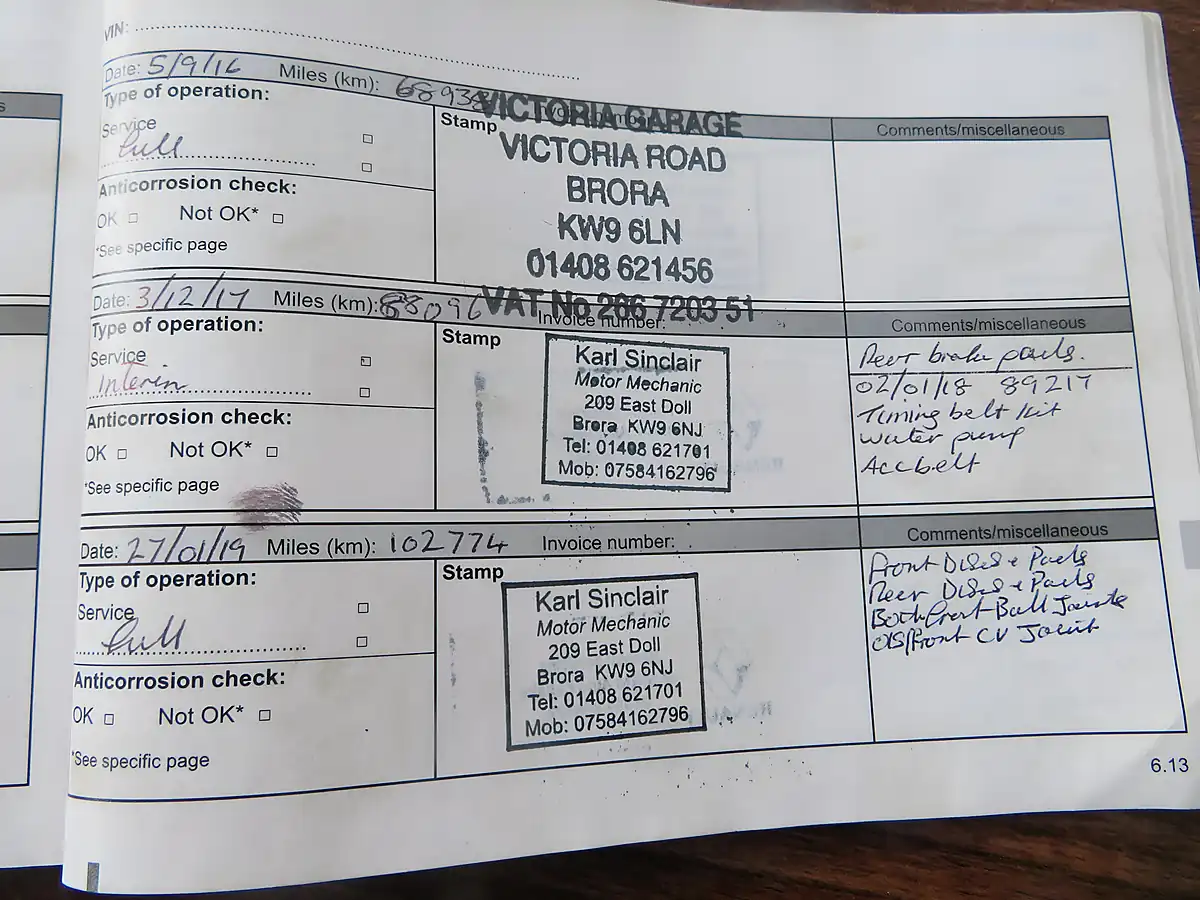 VIN:
Date: 5/9/16 Miles (km): 68938
Type of operation:
Service
Full
Anticorrosion check:
OK Not OK*
*See specific page
Stamp
VICTORIA GARAGE
VICTORIA ROAD
BRORA
KW9 6LN
01408 621456
VAT No 266 7203 51
Comments/miscellaneous
Date: 3/12/17 Miles (km): 88096 Invoice number:
Type of operation:
Service
Interim
Anticorrosion check:
OK Not OK*
*See specific page
Stamp
Karl Sinclair
Motor Mechanic
209 East Doll
Brora KW9 6NJ
Tel: 01408 621701
Mob: 07584162796
Comments/miscellaneous
Rear brake pads.
02/01/18 89217
Timing belt kit
water pump
Acc belt
Date: 27/01/19 Miles (km): 102774 Invoice number:
Type of operation:
Service
Full
Anticorrosion check:
OK Not OK*
*See specific page
Stamp
Karl Sinclair
Motor Mechanic
209 East Doll
Brora KW9 6NJ
Tel: 01408 621701
Mob: 07584162796
Comments/miscellaneous
Front Discs + Pads
Rear Discs + Pads
Both Front Ball Joints
O/S/Front CV Joint
6.13